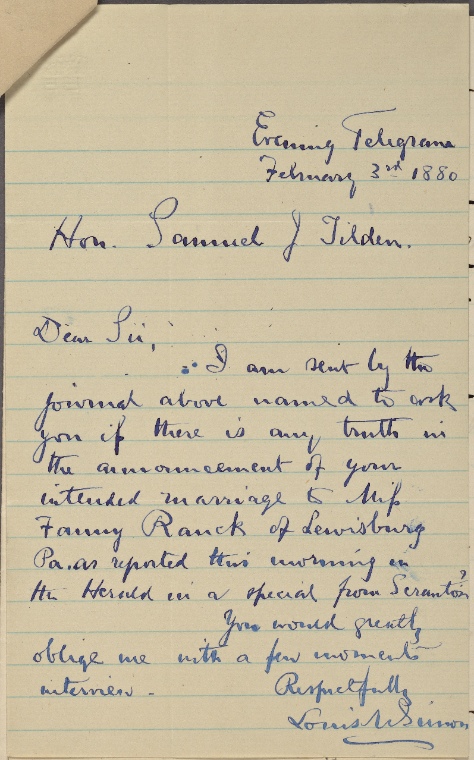 Evening Telegram
February 3rd 1880
Hon. Samuel J Tilden.
Dear Sir,
I am sent by the
journal above named to ask
you if there is any truth in
the announcement of your
intended marriage to Miss
Fanny Ranck of Lewisburg
Pa. as reported this morning in
the Herald in a special from Scranton?
You would greatly
oblige me with a few moments
interview.
Respectfully
Louis